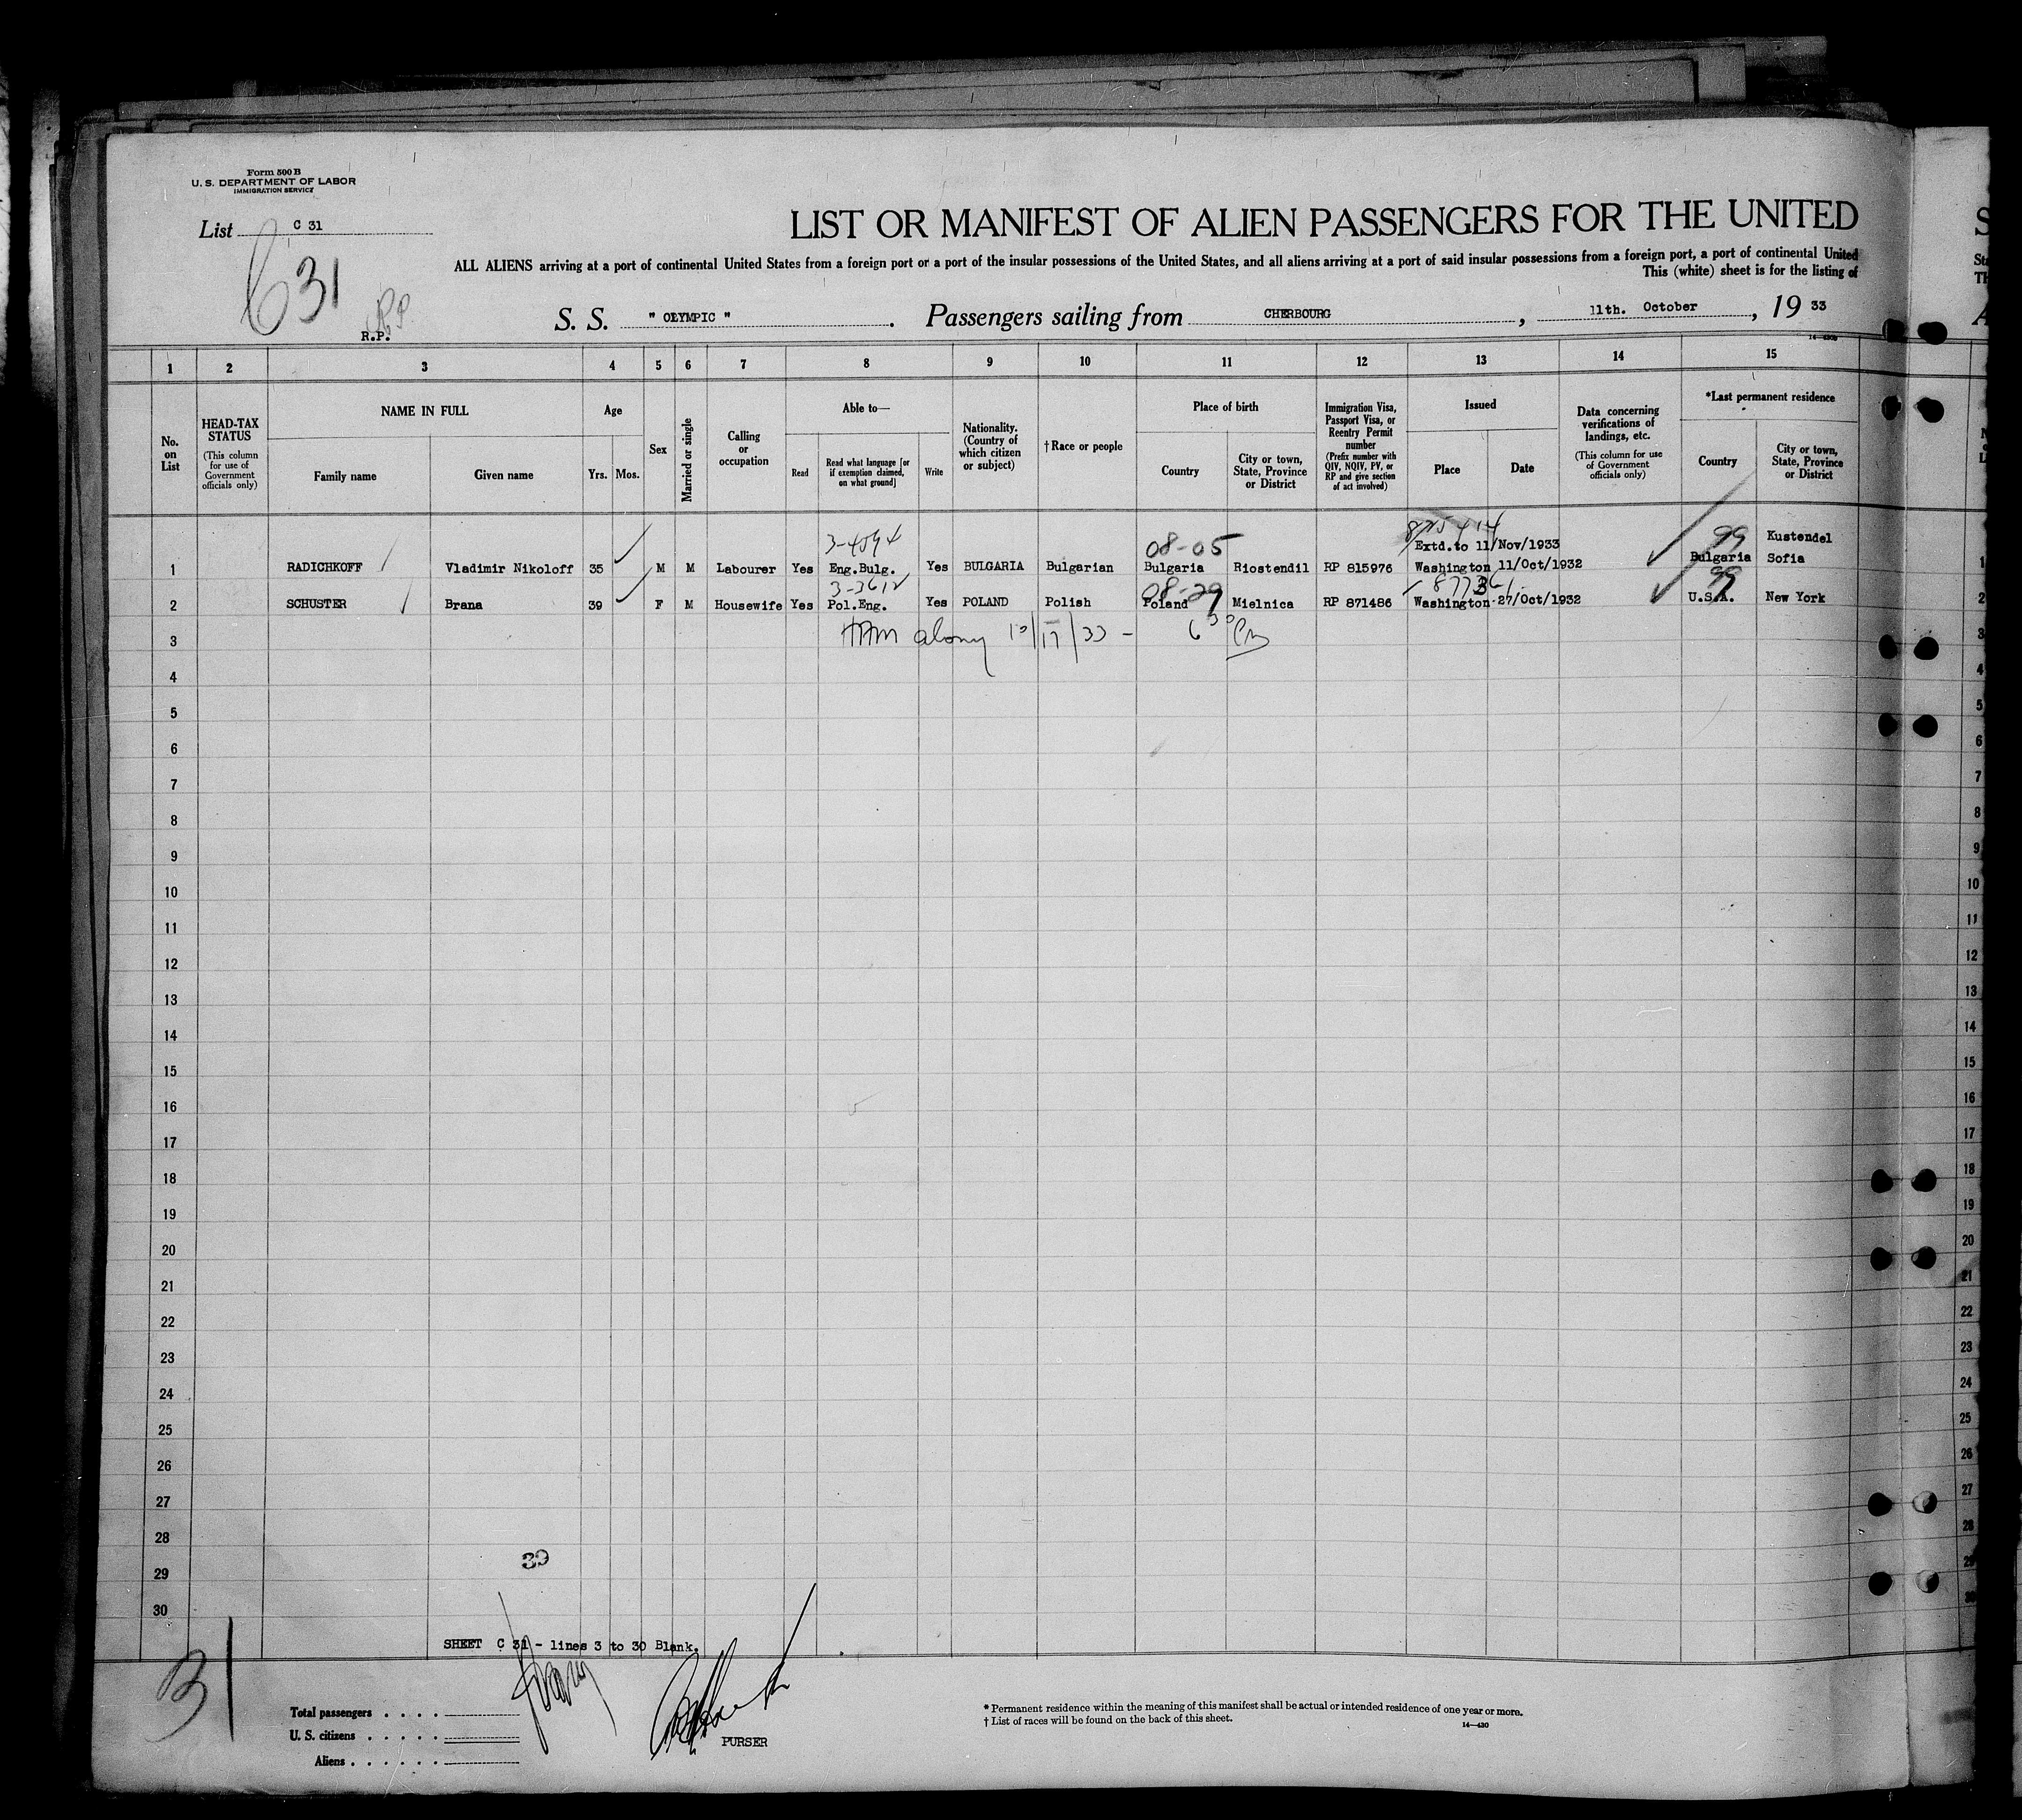 Form 500 B
U. S. DEPARTMENT OF LABOR
IMMIGRATION SERVICE
List C 31
C 31
RP
R.P.
LIST OR MANIFEST OF ALIEN PASSENGERS FOR THE UNITED
ALL ALIENS arriving at a port of continental United States from a foreign port or a port of the insular possessions of the United States, and all aliens arriving at a port of said insular possessions from a foreign port, a port of continental United
This (white) sheet is for the listing of
S. S. " OLYMPIC ". Passengers sailing from CHERBOURG, 11th. October, 19 33
1 2 3 4 5 6 7 8 9 10 11 12 13 14 15
No. on List
HEAD-TAX STATUS (This column for use of Government officials only)
NAME IN FULL
Family name Given name
Age
Yrs. Mos.
Sex
Married or single
Calling or occupation
Able to—
Read Read what language [or if exemption claimed, on what ground] Write
Nationality. (Country of which citizen or subject)
†Race or people
Place of birth
Country City or town, State, Province or District
Immigration Visa, Passport Visa, or Reentry Permit number (Prefix number with QIV, NQIV, PV, or RP and give section of act involved)
Issued
Place Date
Data concerning verifications of landings, etc. (This column for use of Government officials only)
*Last permanent residence
Country City or town, State, Province or District
3-4594 08-05 99 Kustendel
Extd.to 11/Nov/1933
1 RADICHKOFF Vladimir Nikoloff 35 M M Labourer Yes Eng.Bulg. Yes BULGARIA Bulgarian Bulgaria Riostendil RP 815976 Washington 11/Oct/1932 Bulgaria Sofia
3-3612 08-29 99
2 SCHUSTER Brana 39 F M Housewife Yes Pol.Eng. Yes POLAND Polish Poland Mielnica RP 871486 Washington 27/Oct/1932 U.S.A. New York
3 10/17/33 - 6 30
4
5
6
7
8
9
10
11
12
13
14
15
16
17
18
19
20
21
22
23
24
25
26
27
28
29
30
39
SHEET C 31 - lines 3 to 30 Blank.
31
Total passengers
U. S. citizens
Aliens
PURSER
* Permanent residence within the meaning of this manifest shall be actual or intended residence of one year or more.
† List of races will be found on the back of this sheet.
14—430